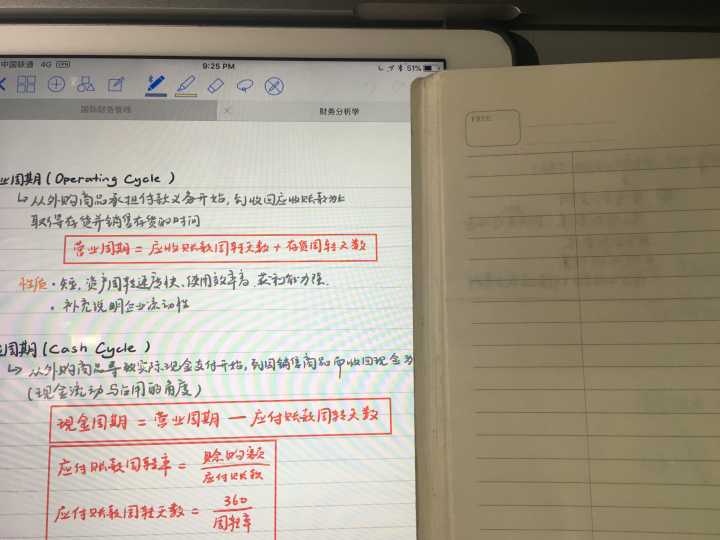 中国联通 4G VPN 9:25 PM 51%
国际财务管理 财务分析学
业周期 (Operating Cycle)
↳ 从外购商品承担付款义务开始, 到收回应收账款为止
取得存货并销售存货的时间
营业周期 = 应收账款周转天数 + 存货周转天数
性质 · 短, 资产周转速度快、使用效率高、获利能力强.
· 补充说明企业流动性
周期 (Cash Cycle)
↳ 从外购商品导致实际现金支付开始, 到因销售商品而收回现金为
(现金流动与占用的角度)
现金周期 = 营业周期 — 应付账款周转天数
应付账款周转率 = 赊购额 / 应付账款
应付账款周转天数 = 360 / 周转率